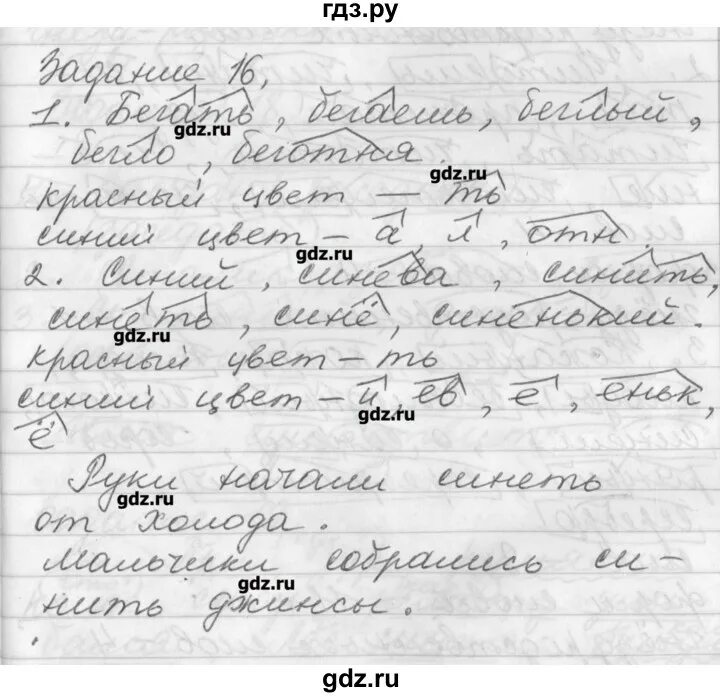 гдз.ру
Задание 16,
1. Бегать, бегаешь, беглый,
gdz.ru
бегло, беготня.
gdz.ru
красный цвет — ть
синий цвет – а, л, отн.
gdz.ru
2. Синий, синева, синить,
синеть, синё, синенький.
gdz.ru
красный цвет – ть
синий цвет – и, ев, е, еньк,
gdz.ru
ё
Руки начали синеть
gdz.ru
от холода.
Мальчики собрались си-
gdz.ru
нить джинсы.
gdz.ru